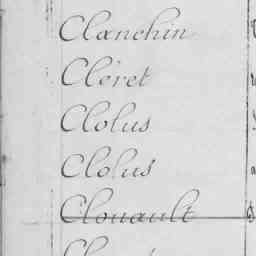 Clanchin
Cléret
Clolus
Clolus
Clouault